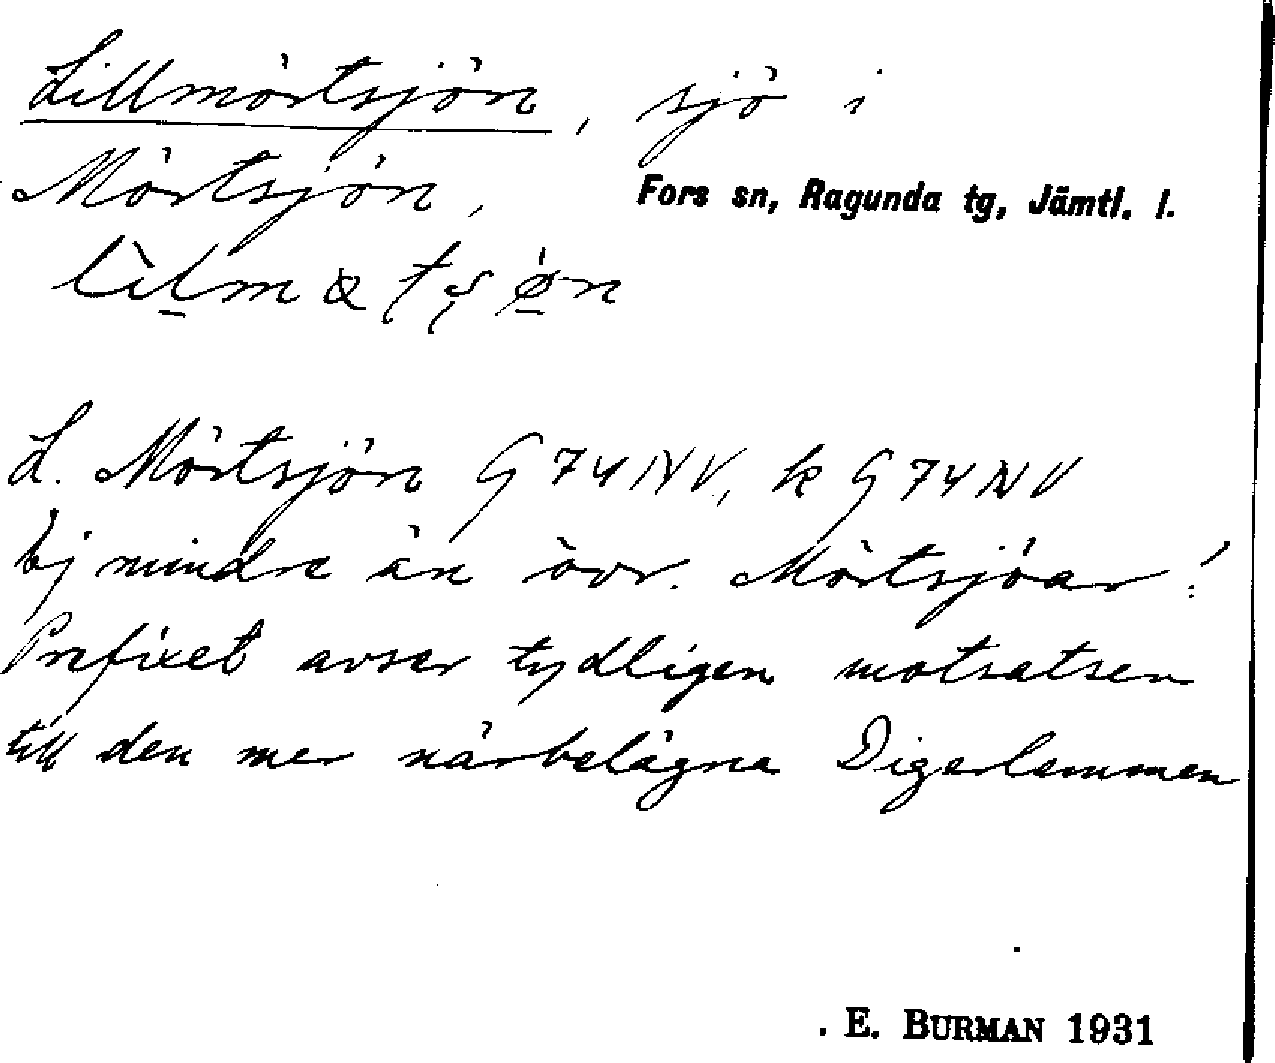 Lillmörtsjön, sjö i
Mörtsjön,
Fors sn, Ragunda tg, Jämtl. l.
L. Mörtsjön G 74 NV, k G 74 NV
Ej mindre än övr. Mörtsjöar!
Prefixet avser tydligen motsatsen
till den mer närbelägna Digerlemmen
. E. BURMAN 1931